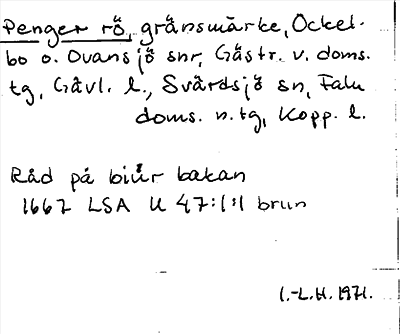 Penger rö, gränsmärke, Ockel-
bo o. Ovansjö snr, Gästr. v. doms.
tg, Gävl. l., Svärdsjö sn, Falu
doms. n. tg, Kopp. l.
Råd på biúr bakan
1667 LSA U 47:1:1 brun
I.-L.H. 1971.